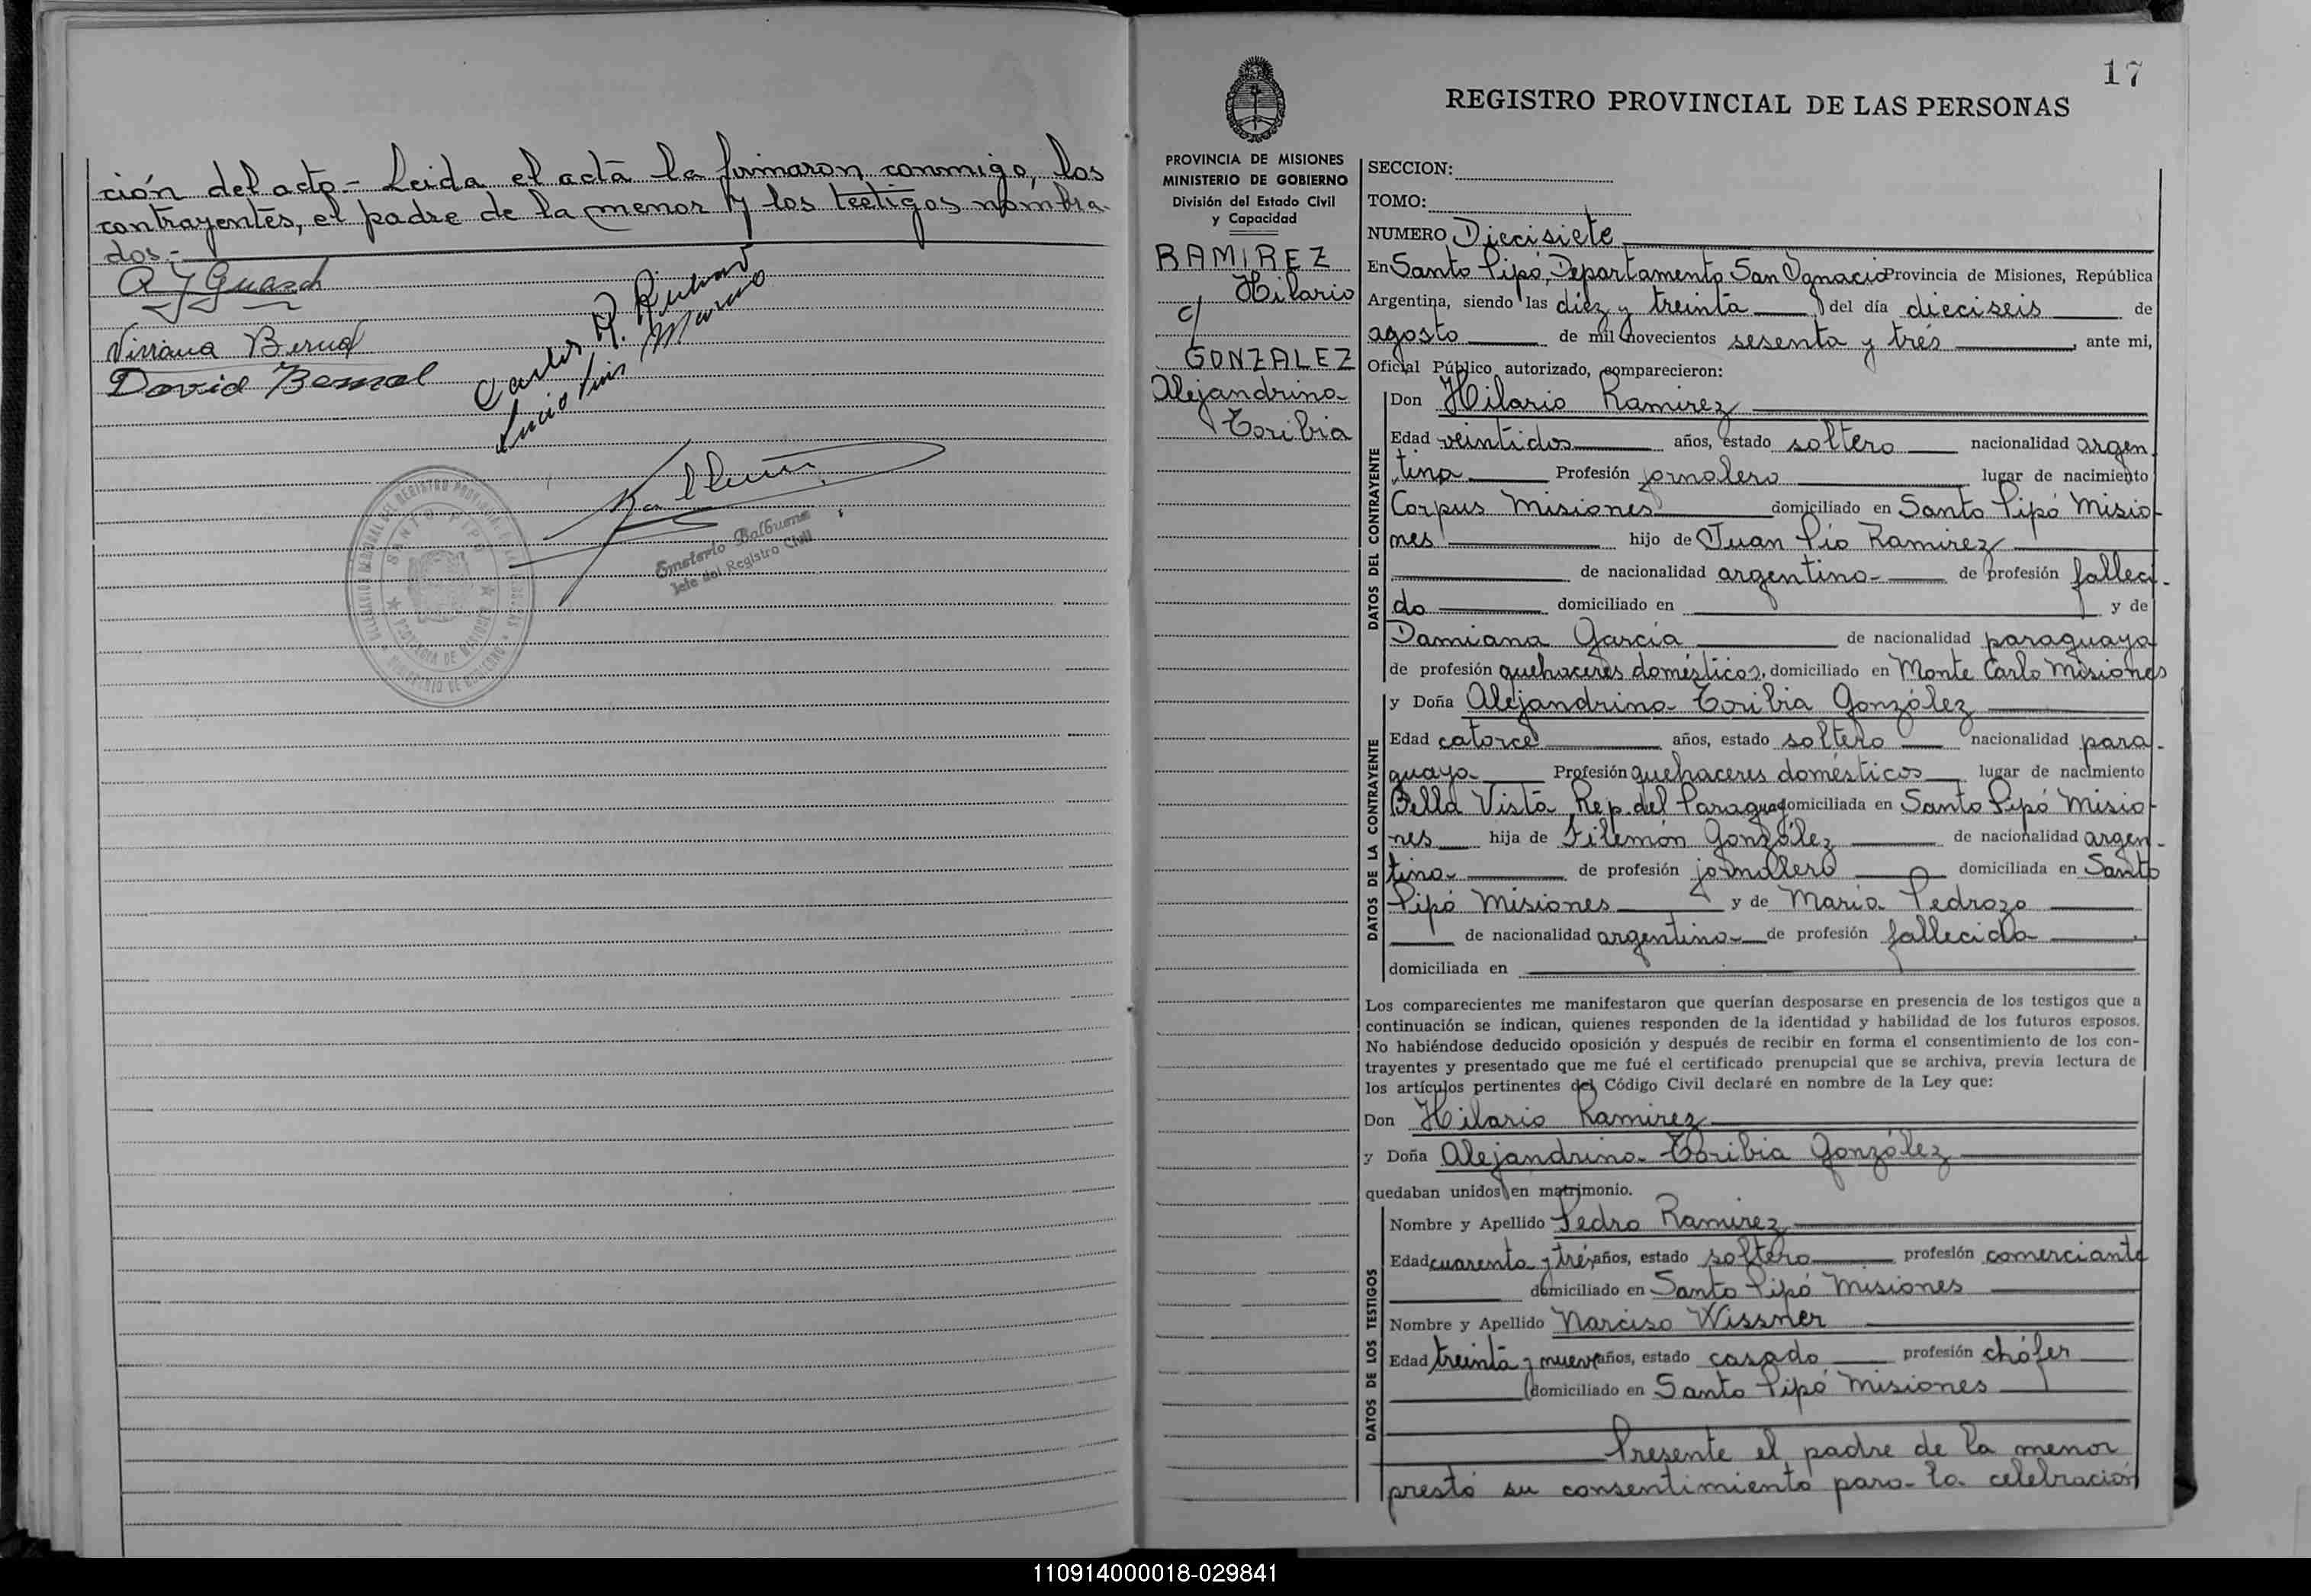 ción del acto - Leida el acta la firmaron conmigo, los
contrayentes, el padre de la menor y los testigos nombra-
dos.-
David Bernal
Emeterio Balbuena
Jefe del Registro Civil
SANTO PIPO
17
REGISTRO PROVINCIAL DE LAS PERSONAS
PROVINCIA DE MISIONES
MINISTERIO DE GOBIERNO
División del Estado Civil
y Capacidad
RAMIREZ
Hilario
c/
GONZALEZ
Alejandrina
Toribia
SECCION:
TOMO:
NUMERO Diecisiete
En Santo Pipó, Departamento San Ignacio Provincia de Misiones, República
Argentina, siendo las diez y treinta del día dieciseis de
agosto de mil novecientos sesenta y trés, ante mi,
Oficial Público autorizado, comparecieron:
DATOS DEL CONTRAYENTE
Don Hilario Ramirez
Edad veintidos años, estado soltero nacionalidad argen
tina Profesión jornalero lugar de nacimiento
Corpus Misiones domiciliado en Santo Pipó Misio-
nes hijo de Juan Pío Ramirez
de nacionalidad argentina de profesión falleci-
do domiciliado en y de
Damiana García de nacionalidad paraguaya
de profesión quehaceres domésticos, domiciliado en Monte Carlo Misiones
DATOS DE LA CONTRAYENTE
y Doña Alejandrina Toribia González
Edad catorce años, estado soltera nacionalidad para-
guaya Profesión quehaceres domésticos lugar de nacimiento
Bella Vista, Rep. del Paraguay domiciliada en Santo Pipó Misio-
nes hija de Filemón González de nacionalidad argen-
tina de profesión jornalero domiciliada en Santo
Pipó Misiones y de María Pedrozo
de nacionalidad argentina de profesión fallecida
domiciliada en
Los comparecientes me manifestaron que querían desposarse en presencia de los testigos que a
continuación se indican, quienes responden de la identidad y habilidad de los futuros esposos.
No habiéndose deducido oposición y después de recibir en forma el consentimiento de los con-
trayentes y presentado que me fué el certificado prenupcial que se archiva, previa lectura de
los artículos pertinentes del Código Civil declaré en nombre de la Ley que:
Don Hilario Ramirez
y Doña Alejandrina Toribia González
quedaban unidos en matrimonio.
DATOS DE LOS TESTIGOS
Nombre y Apellido Pedro Ramirez
Edad cuarenta y trés años, estado soltero profesión comerciante
domiciliado en Santo Pipó Misiones
Nombre y Apellido Narciso Wissner
Edad treinta y nueve años, estado casado profesión chófer
domiciliado en Santo Pipó Misiones
Presente el padre de la menor
prestó su consentimiento para la celebración
110914000018-029841